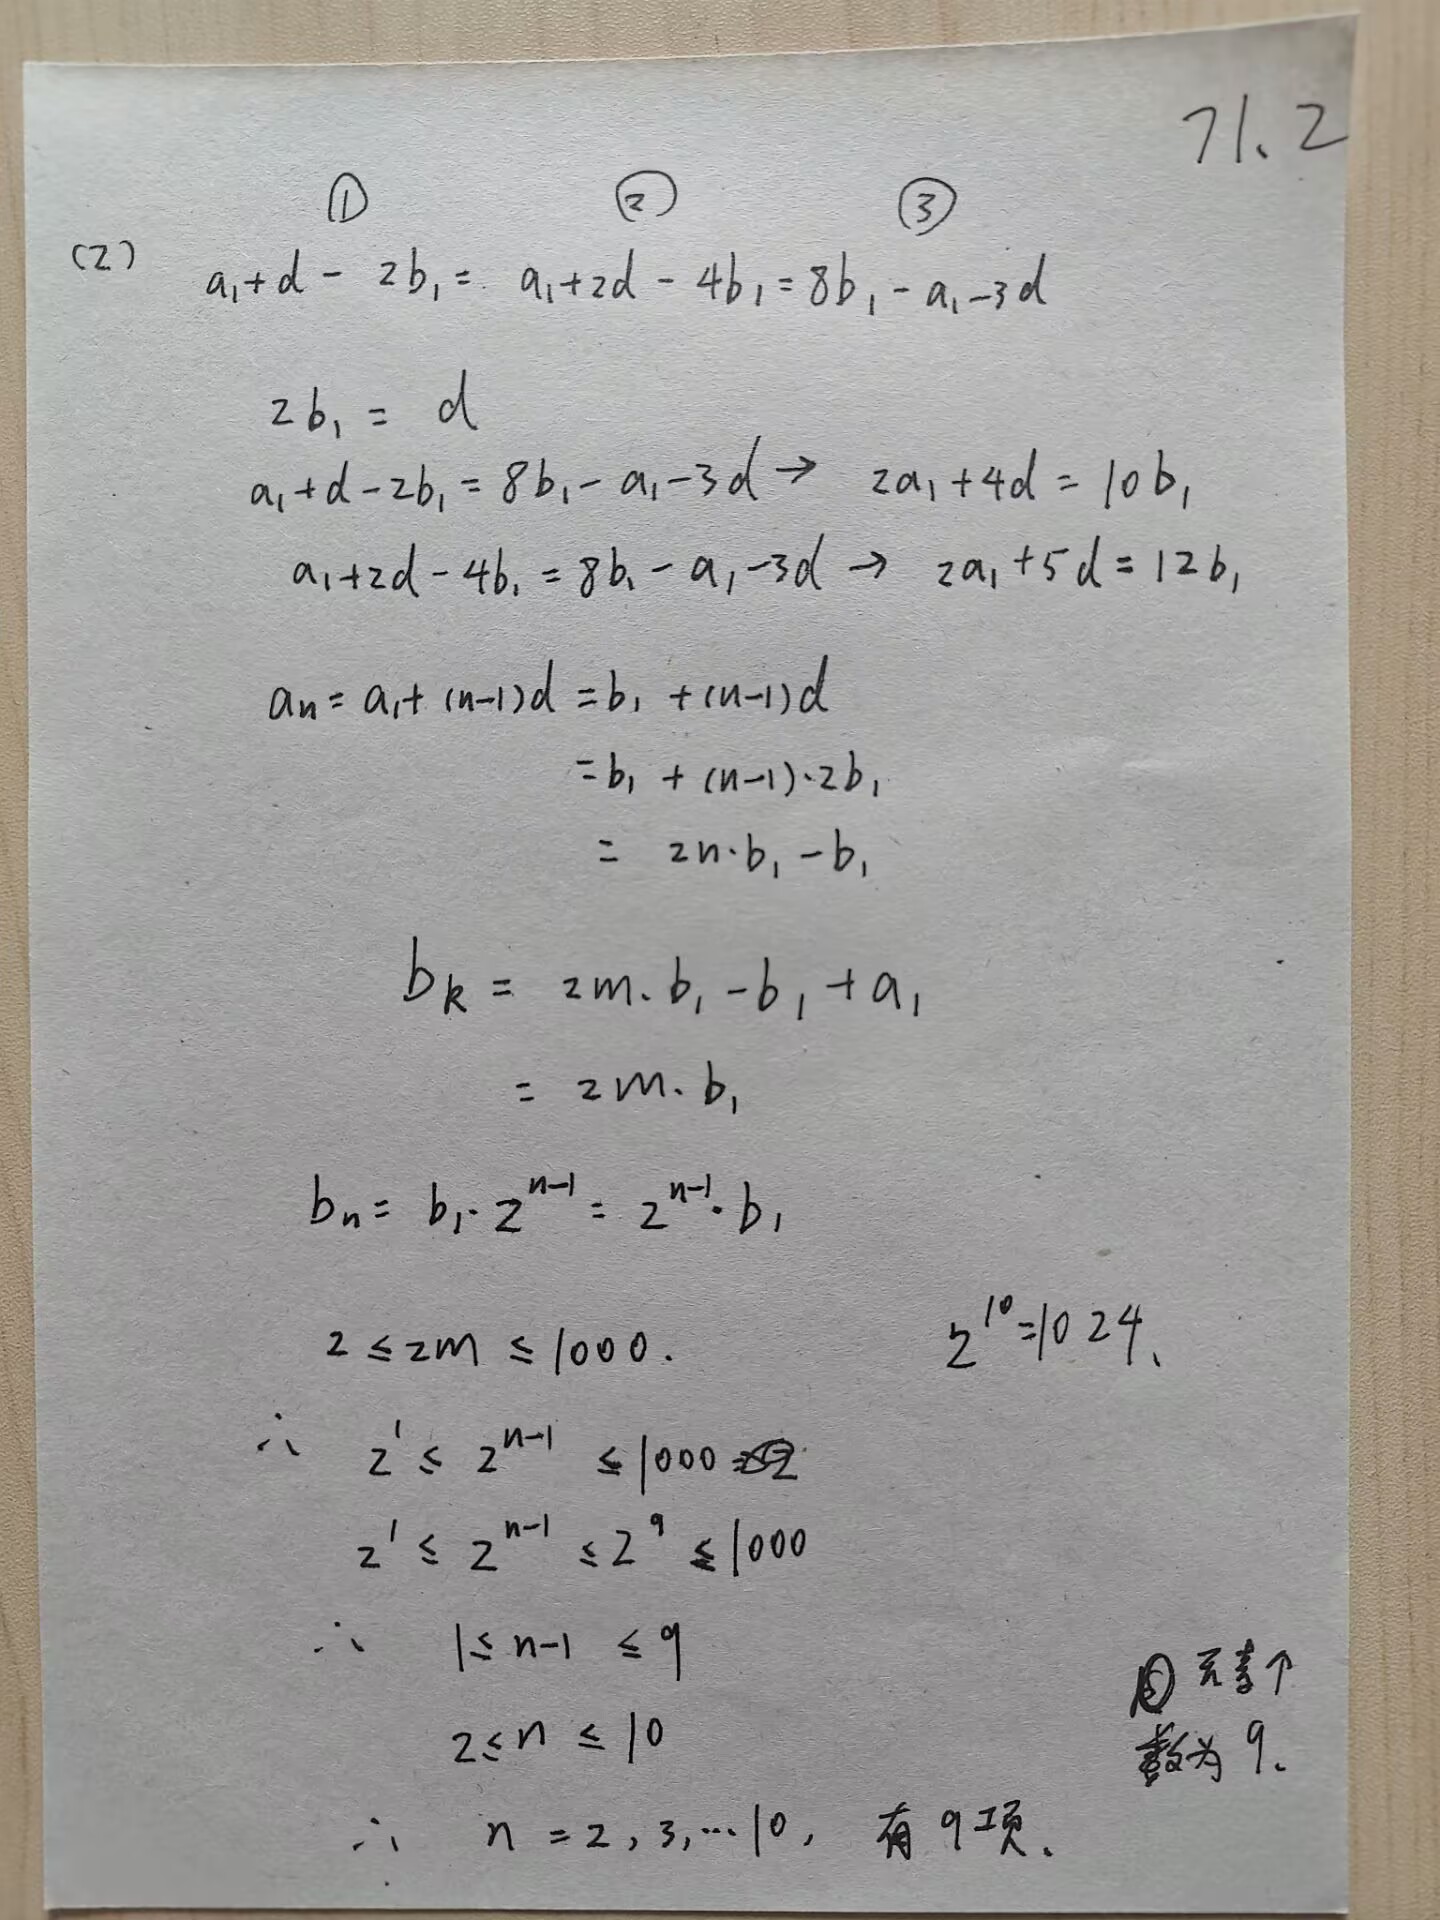 71.2
① ② ③
(2) a₁+d - 2b₁ = a₁+2d - 4b₁ = 8b₁ - a₁ - 3d
2b₁ = d
a₁+d-2b₁ = 8b₁ - a₁ - 3d → 2a₁+4d = 10b₁
a₁+2d-4b₁ = 8b₁ - a₁ - 3d → 2a₁+5d = 12b₁
aₙ = a₁+(n-1)d = b₁+(n-1)d
= b₁+(n-1)·2b₁
= 2n·b₁ - b₁
bₖ = 2m·b₁ - b₁ + a₁
= 2m·b₁
bₙ = b₁·2ⁿ⁻¹ = 2ⁿ⁻¹·b₁
2 ≤ 2m ≤ 1000. 2¹⁰=1024.
∴ 2¹ ≤ 2ⁿ⁻¹ ≤ 1000
2¹ ≤ 2ⁿ⁻¹ ≤ 2⁹ ≤ 1000
∴ 1 ≤ n-1 ≤ 9
2 ≤ n ≤ 10
元素个
数为9.
∴ n = 2, 3, … 10, 有9项.